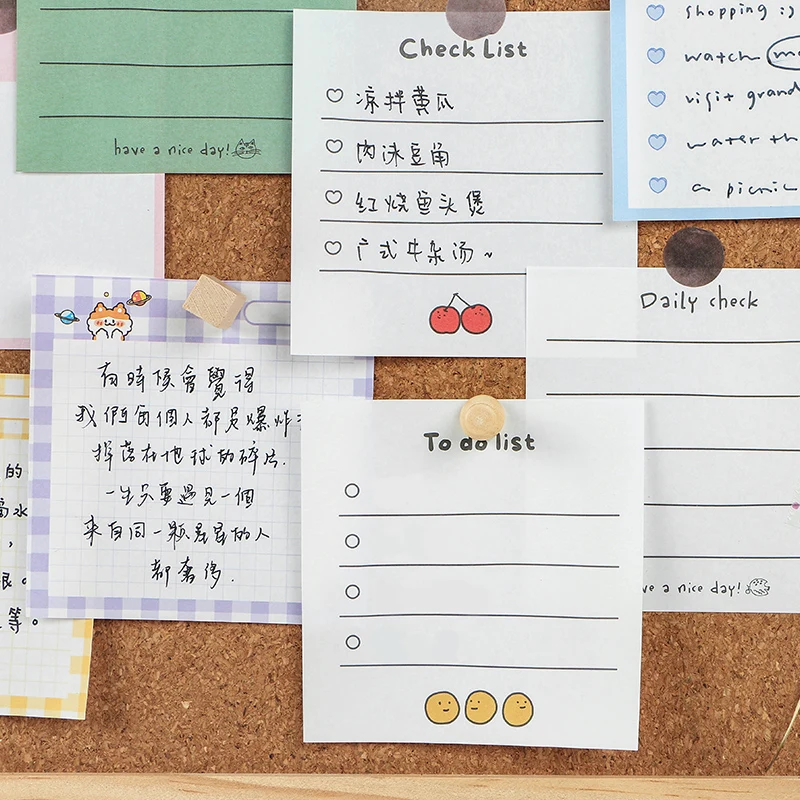 have a nice day!
Check List
凉拌黄瓜
肉沫豆角
红烧鱼头煲
广式牛杂汤~
shopping :)
watch
visit grand
water th
a picnic
Daily check
ve a nice day!
有時候會覺得
我們每個人都是爆炸
掉落在地球的碎片.
一生只要遇見一個
來自同一顆星星的人
都奢侈.
To do list
的
水
，
等。